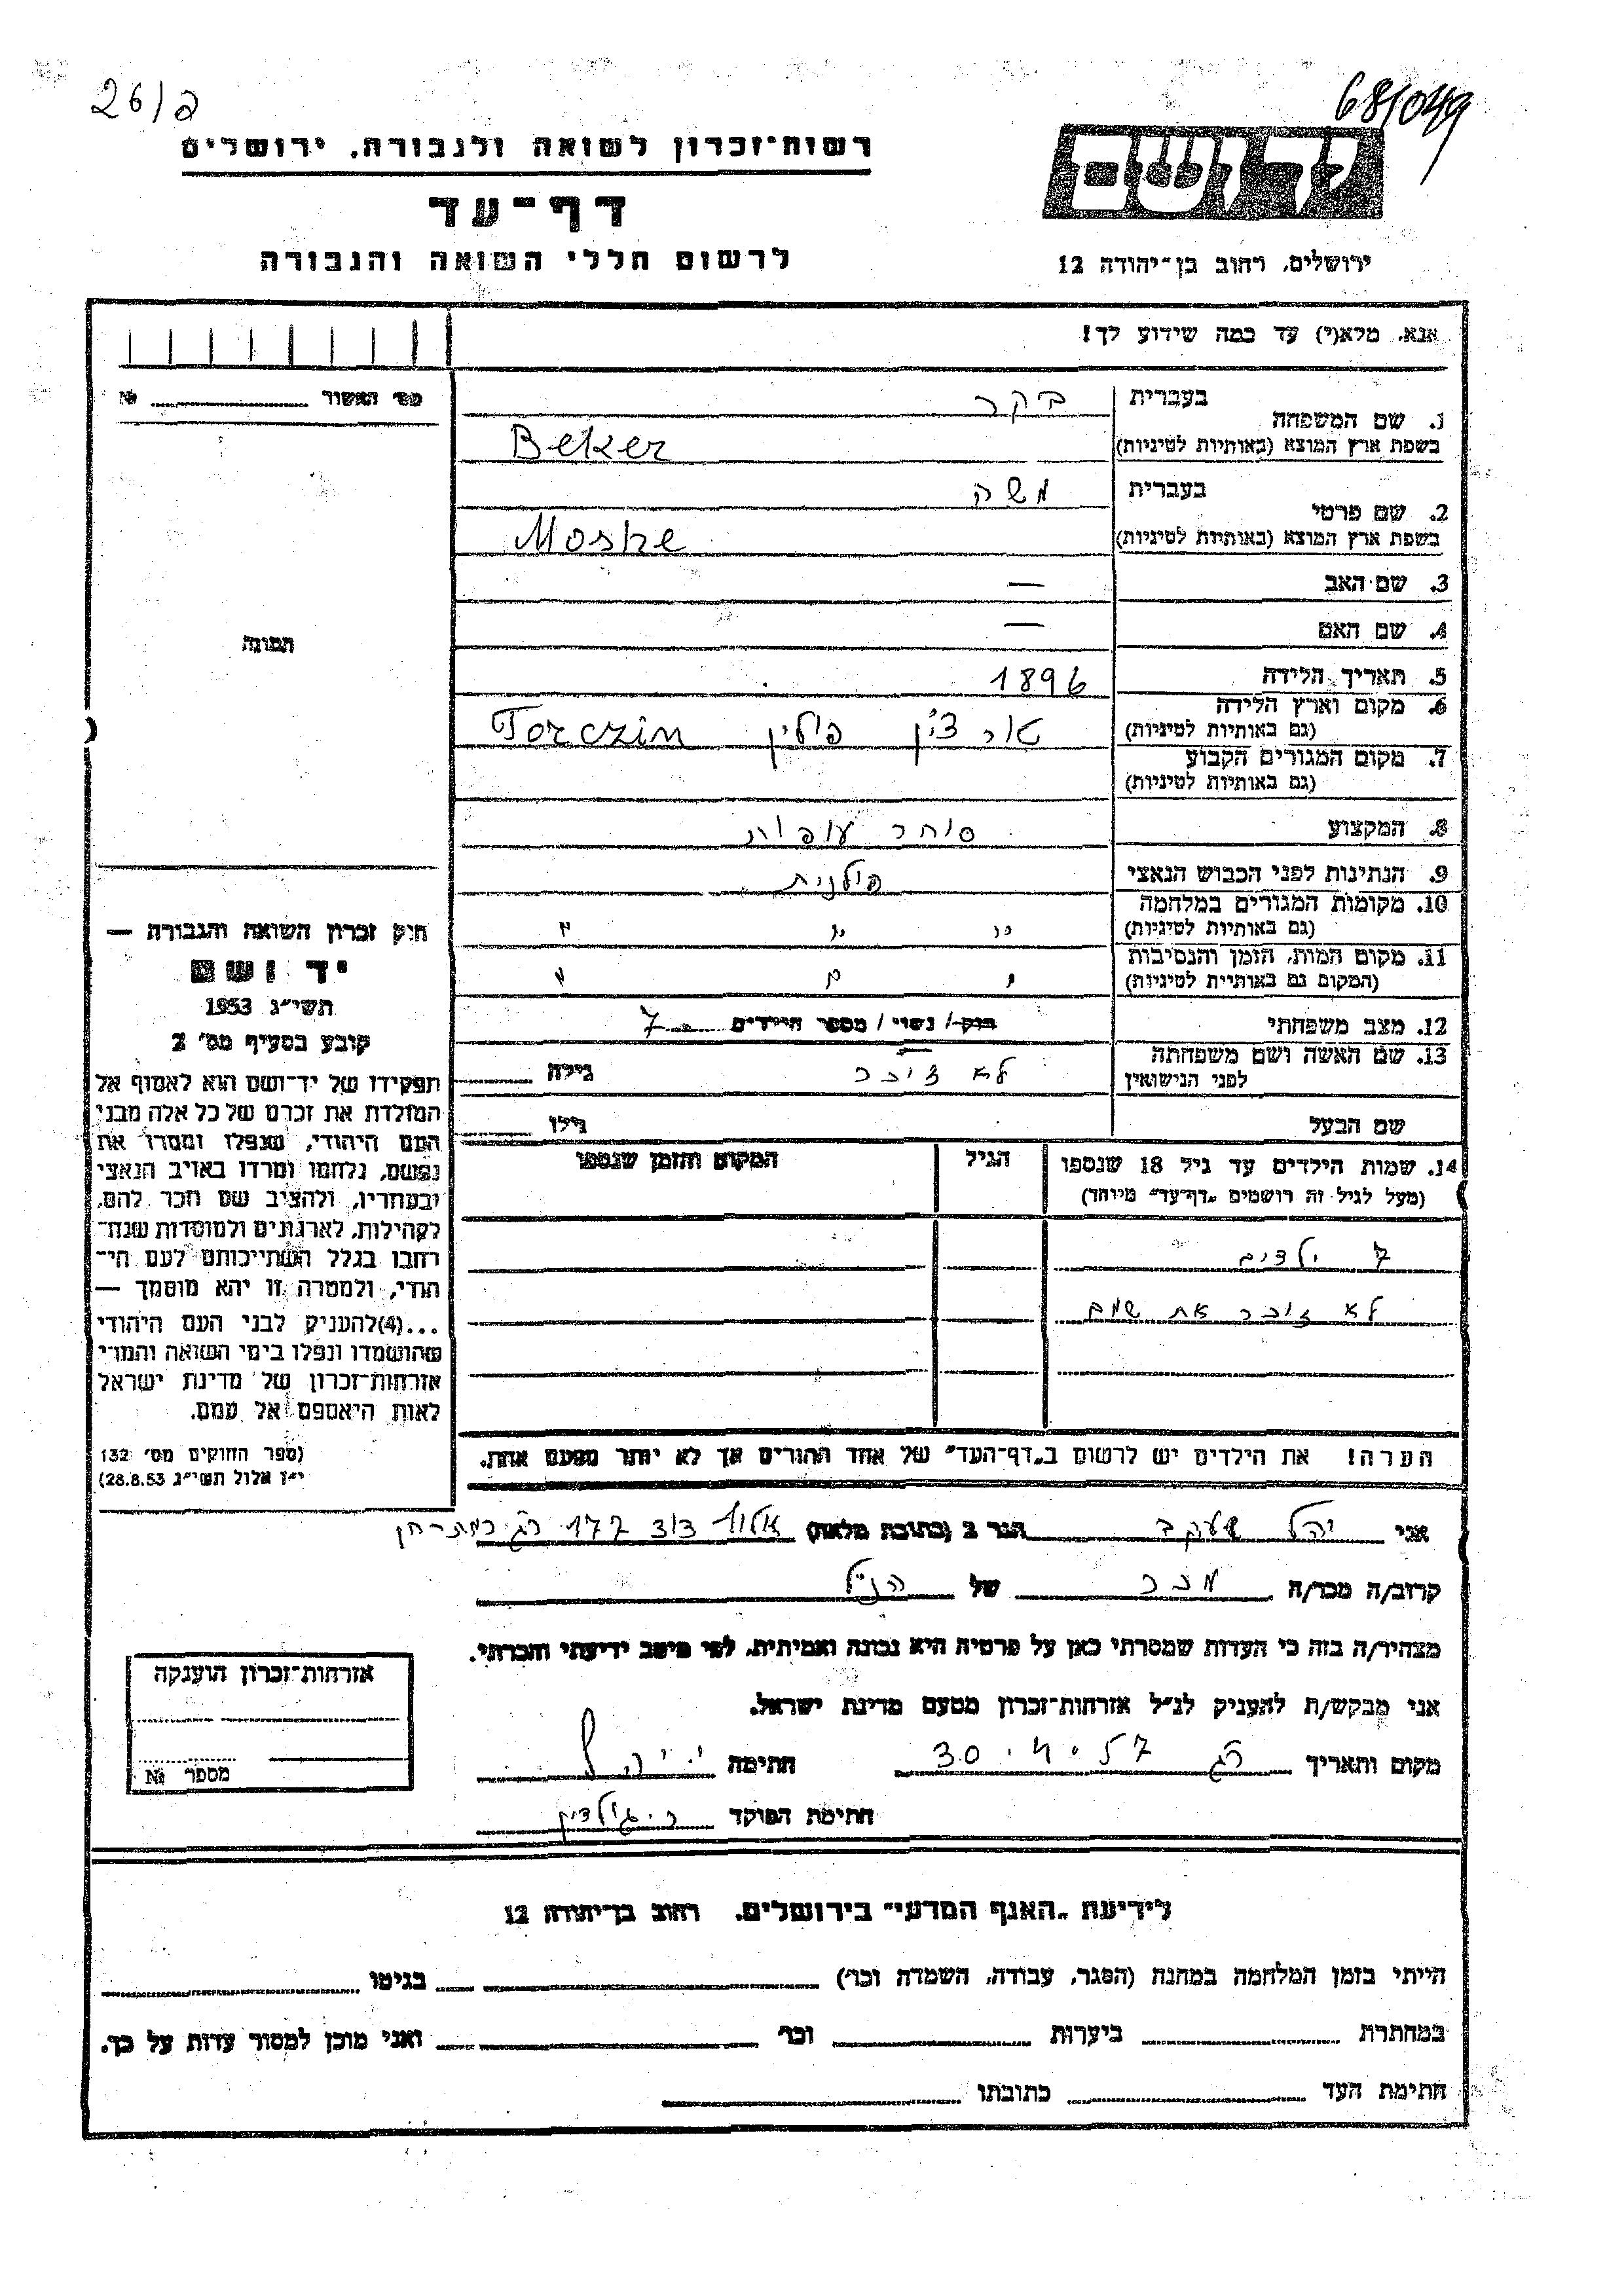 68/049
26/ב
יד ושם
רשות-זכרון לשואה ולגבורה, ירושלים
דף-עד
לרשום חללי השואה והגבורה
ירושלים, רחוב בן-יהודה 12
אנא, מלא(י) עד כמה שידוע לך!
מס' האשור № 
1. שם המשפחה
בעברית בקר
בשפת ארץ המוצא (באותיות לטיניות) Beker
2. שם פרטי
בעברית משה
בשפת ארץ המוצא (באותיות לטיניות) Moshe
3. שם האב —
4. שם האם —
תמונה
5. תאריך הלידה 1896
6. מקום וארץ הלידה
(גם באותיות לטיניות) טורצ'ין פולין Torczin
7. מקום המגורים הקבוע
(גם באותיות לטיניות)
8. המקצוע סוחר עופות
9. הנתינות לפני הכבוש הנאצי פולנית
10. מקומות המגורים במלחמה
(גם באותיות לטיניות) " " "
11. מקום המות, הזמן והנסיבות
(המקום גם באותיות לטיניות) " " "
12. מצב משפחתי רוק / נשוי / מספר הילדים 7
13. שם האשה ושם משפחתה
לפני הנישואין לא זוכר גילה
שם הבעל גילו
14. שמות הילדים עד גיל 18 שנספו הגיל המקום והזמן שנספו
(מעל לגיל זה רושמים "דף-עד" מיוחד)
7 ילדים
לא זוכר את שמם
הערה! את הילדים יש לרשום ב"דף-העד" של אחד ההורים אך לא יותר מפעם אחת.
חוק זכרון השואה והגבורה —
יד ושם
תשי"ג 1953
קובע בסעיף מס' 2
תפקידו של יד-ושם הוא לאסוף אל
המולדת את זכרם של כל אלה מבני
העם היהודי, שנפלו ומסרו את
נפשם, נלחמו ומרדו באויב הנאצי
ובעוזריו, ולהציב שם וזכר להם,
לקהילות, לארגונים ולמוסדות שנח-
רבו בגלל השתייכותם לעם הי-
הודי, ולמטרה זו יהא מוסמך —
...(4)להעניק לבני העם היהודי
שהושמדו ונפלו בימי השואה והמרי
אזרחות-זכרון של מדינת ישראל
לאות היאספם אל עמם.
(ספר החוקים מס' 132
י"ז אלול תשי"ג 28.8.53)
אני יהל יעקב הגר ב (כתובת מלאה) אלוף דוד 177 רג
קרוב/ה מכר/ה מכר של הנ"ל
מצהיר/ה בזה כי העדות שמסרתי כאן על פרטיה היא נכונה ואמיתית, לפי מיטב ידיעתי והכרתי.
אני מבקש/ת להעניק לנ"ל אזרחות-זכרון מטעם מדינת ישראל.
מקום ותאריך רג 30.4.57 חתימה י. יהל
חתימת הפוקד
אזרחות-זכרון הוענקה
מספר №
לידיעת "האגף המדעי" בירושלים, רחוב בן-יהודה 12
הייתי בזמן המלחמה במחנה (הסגר, עבודה, השמדה וכו') בגיטו
במחתרת ביערות וכו' ואני מוכן למסור עדות על כך.
חתימת העד כתובתו